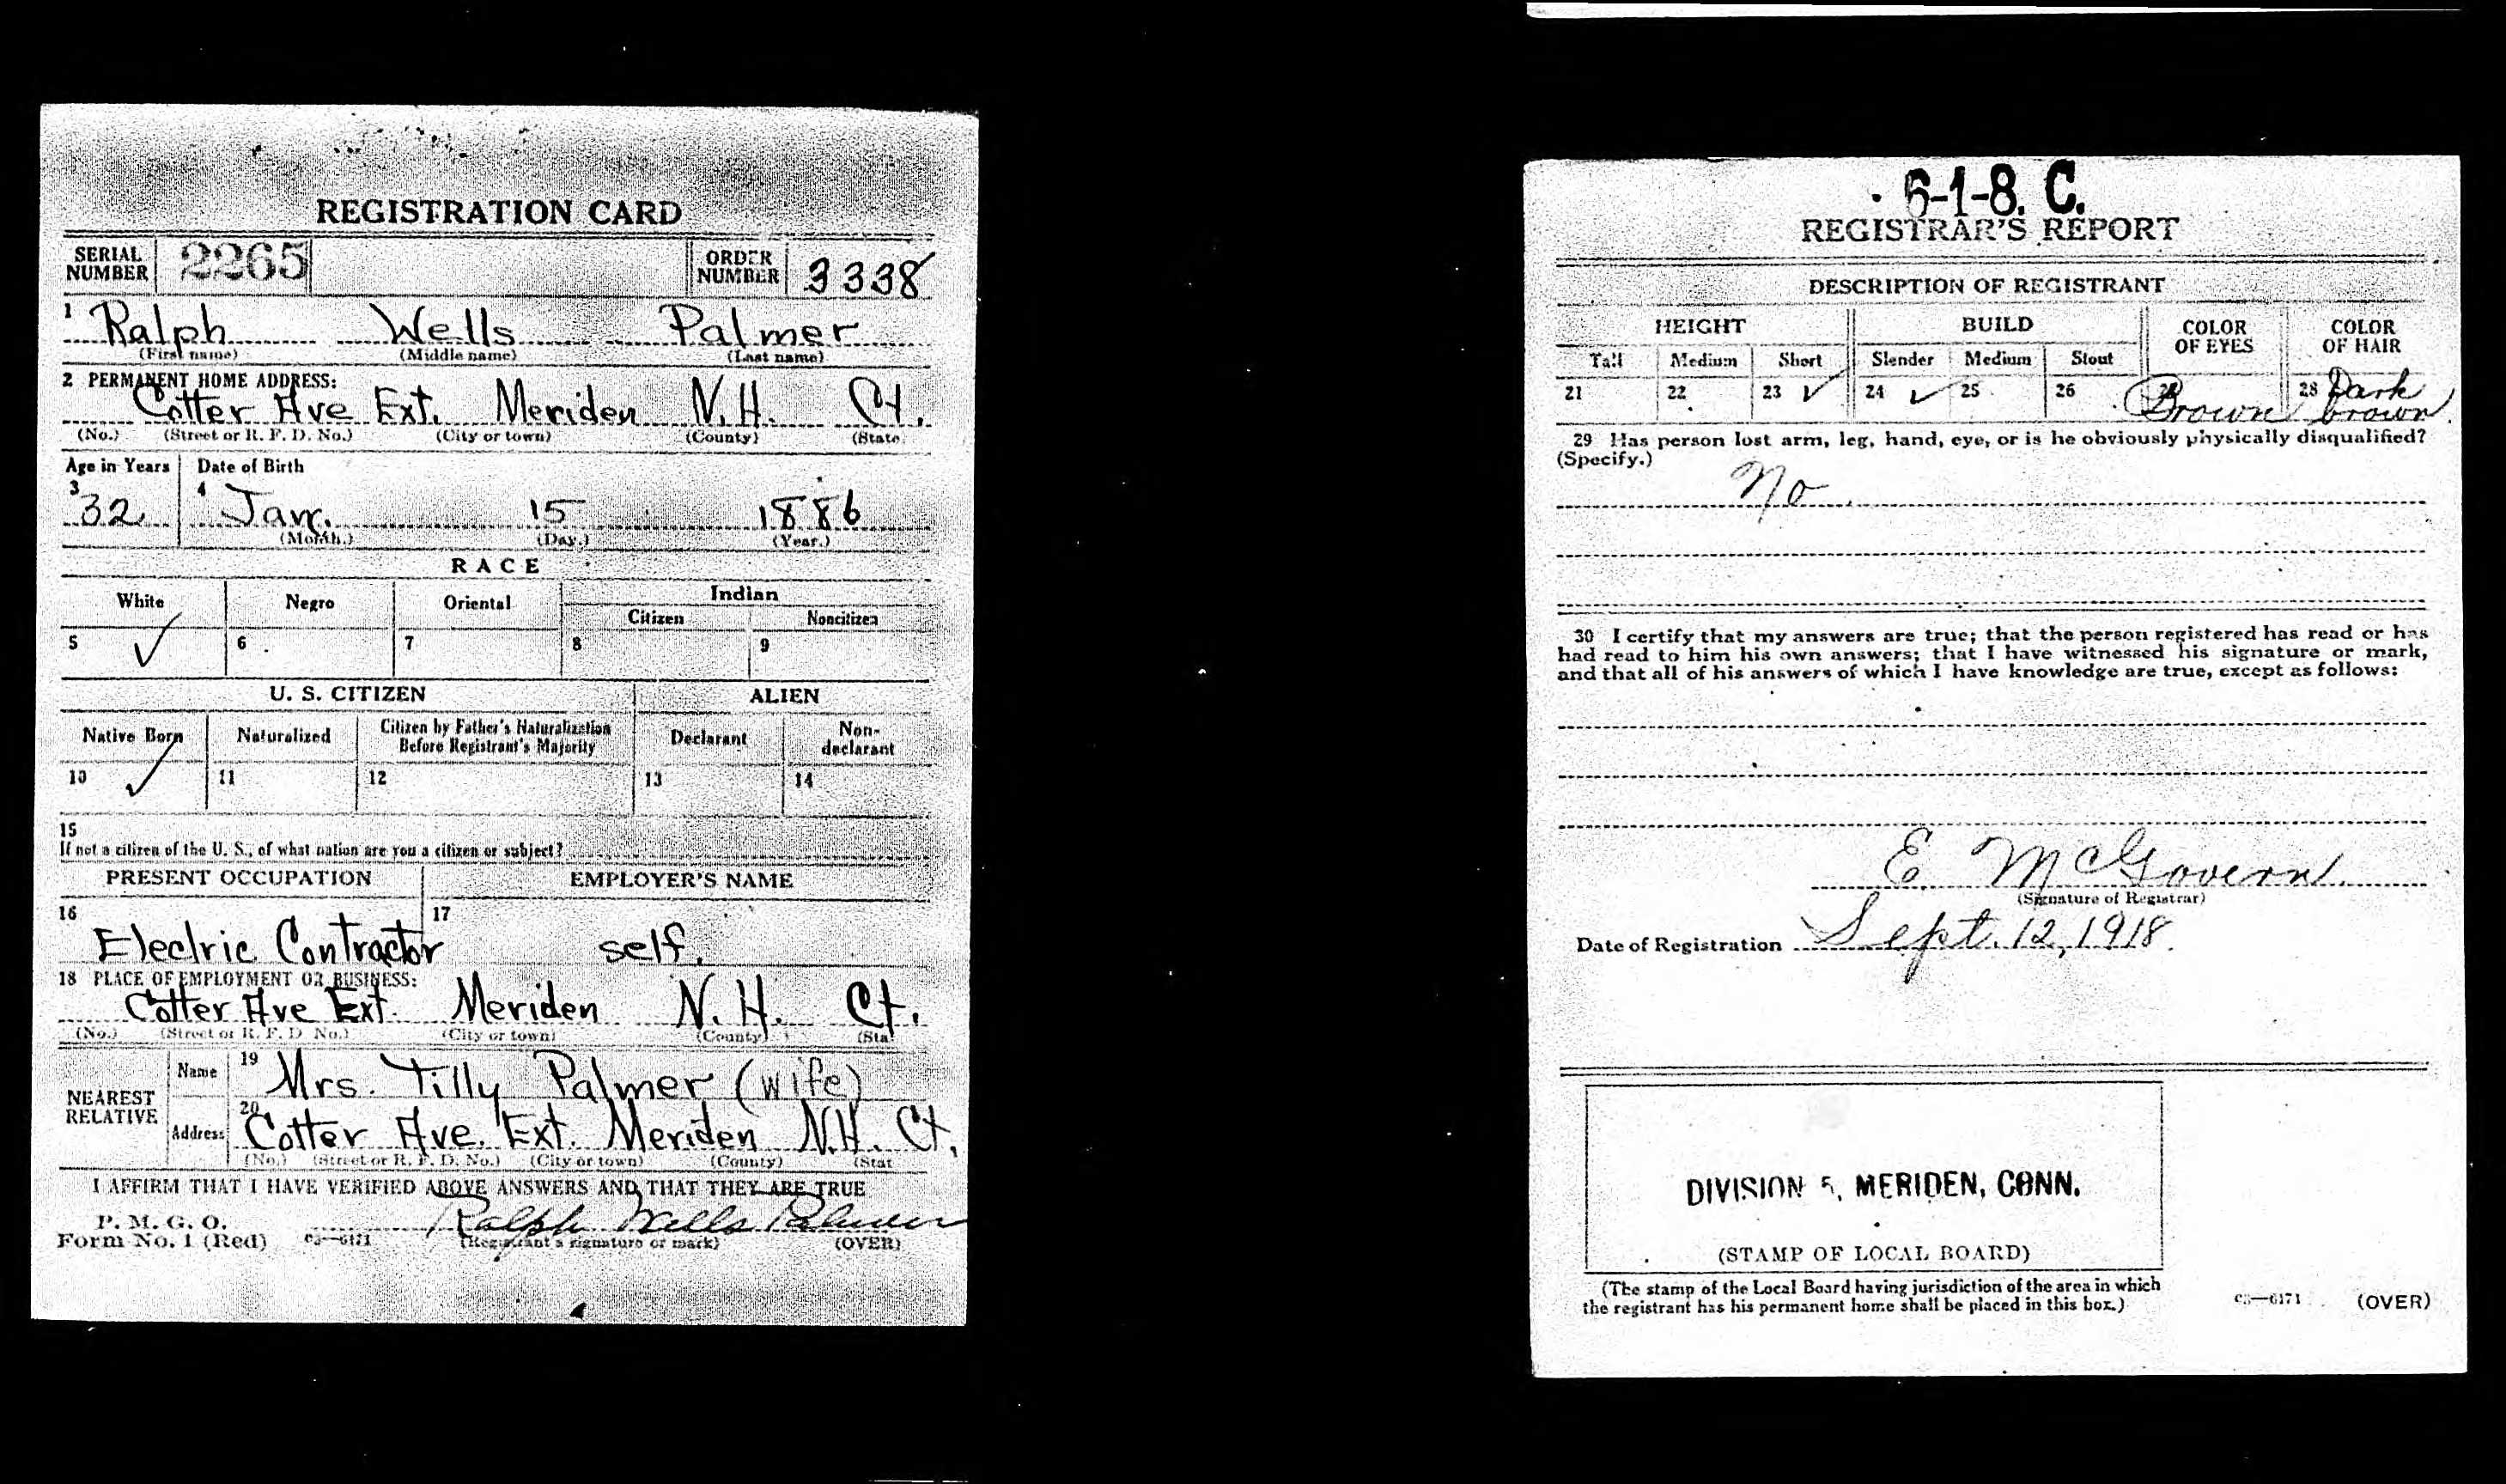 REGISTRATION CARD
SERIAL NUMBER 2265 ORDER NUMBER 3338
1 Ralph Wells Palmer
(First name) (Middle name) (Last name)
2 PERMANENT HOME ADDRESS:
Cotter Ave Ext. Meriden N.H. Ct.
(No.) (Street or R. F. D. No.) (City or town) (County) (State)
Age in Years Date of Birth
3 32 4 Jan. 15 1886
(Month.) (Day.) (Year.)
RACE
White Negro Oriental Indian
Citizen Noncitizen
5 ✓ 6 7 8 9
U. S. CITIZEN ALIEN
Native Born Naturalized Citizen by Father's Naturalization Before Registrant's Majority Declarant Non-declarant
10 ✓ 11 12 13 14
15
If not a citizen of the U. S., of what nation are you a citizen or subject?
PRESENT OCCUPATION EMPLOYER'S NAME
16 17
Electric Contractor self.
18 PLACE OF EMPLOYMENT OR BUSINESS:
Cotter Ave Ext. Meriden N.H. Ct.
(No.) (Street or R. F. D. No.) (City or town) (County) (Sta
NEAREST RELATIVE
Name 19 Mrs. Tilly Palmer (wife)
Address 20 Cotter Ave. Ext. Meriden N.H. Ct.
(No.) (Street or R. F. D. No.) (City or town) (County) (Stat
I AFFIRM THAT I HAVE VERIFIED ABOVE ANSWERS AND THAT THEY ARE TRUE
P. M. G. O.
Form No. 1 (Red) 03—6171 Ralph Wells Palmer
(Registrant's signature or mark) (OVER)
6-1-8. C.
REGISTRAR'S REPORT
DESCRIPTION OF REGISTRANT
HEIGHT BUILD COLOR OF EYES COLOR OF HAIR
Tall Medium Short Slender Medium Stout
21 22 23 ✓ 24 ✓ 25 26 27 Brown 28 Dark brown
29 Has person lost arm, leg, hand, eye, or is he obviously physically disqualified?
(Specify.)
No
30 I certify that my answers are true; that the person registered has read or has
had read to him his own answers; that I have witnessed his signature or mark,
and that all of his answers of which I have knowledge are true, except as follows:
E. McGovern
(Signature of Registrar)
Date of Registration Sept. 12, 1918.
DIVISION 5, MERIDEN, CONN.
(STAMP OF LOCAL BOARD)
(The stamp of the Local Board having jurisdiction of the area in which
the registrant has his permanent home shall be placed in this box.)
03—6171 (OVER)